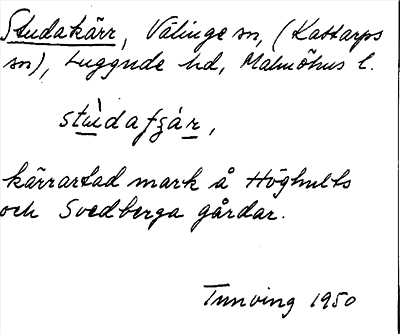 Studakärr, Välinge sn, (Kattarps
sn), Luggude hd, Malmöhus l.
kärrartad mark å Höghults
och Svedberga gårdar.
1950